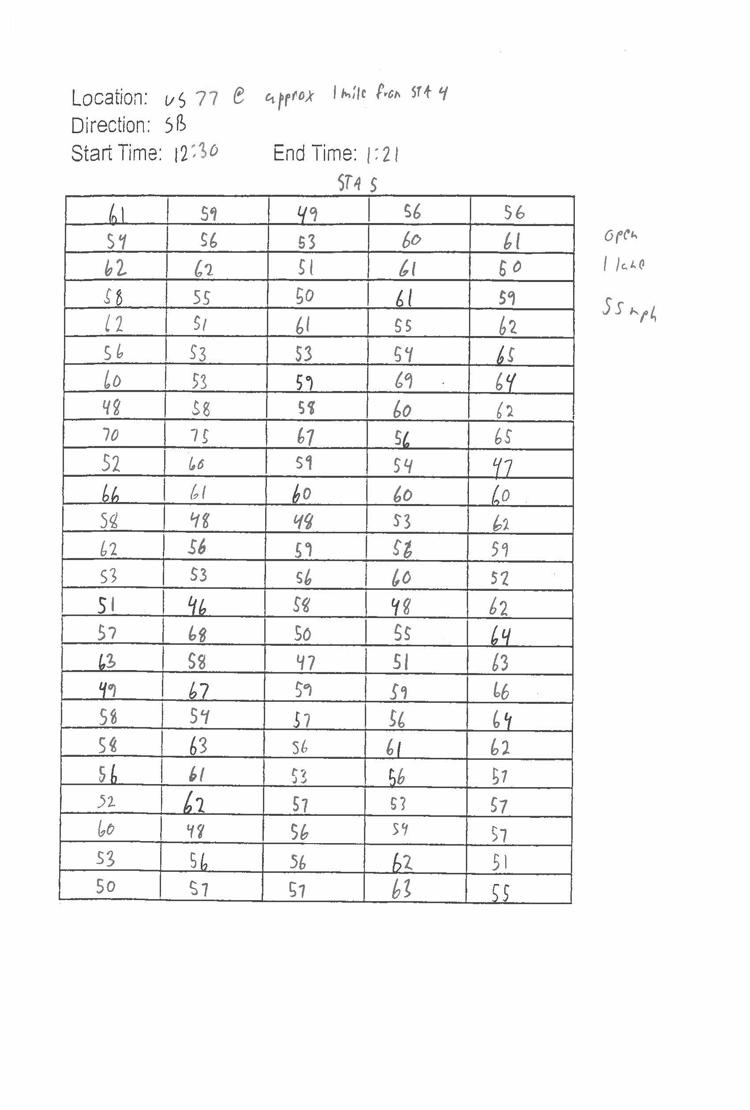 Location: US 77 @ approx 1 mile from STA 4
Direction: SB
Start Time: 12:30 End Time: 1:21
STA 5
61 59 49 56 56
54 56 53 60 61
open
62 62 51 61 60
1 lane
58 55 50 61 59
55 mph
62 51 61 55 62
56 53 53 54 65
60 53 59 69 64
48 58 58 60 62
70 75 67 56 65
52 60 59 54 47
66 61 60 60 60
58 48 48 53 62
62 56 59 58 59
53 53 56 60 52
51 46 58 48 62
57 68 50 55 64
63 58 47 51 63
49 67 59 59 66
58 54 57 56 64
58 63 56 61 62
56 61 53 56 57
52 62 57 53 57
60 48 56 54 57
53 56 56 62 51
50 57 57 63 55